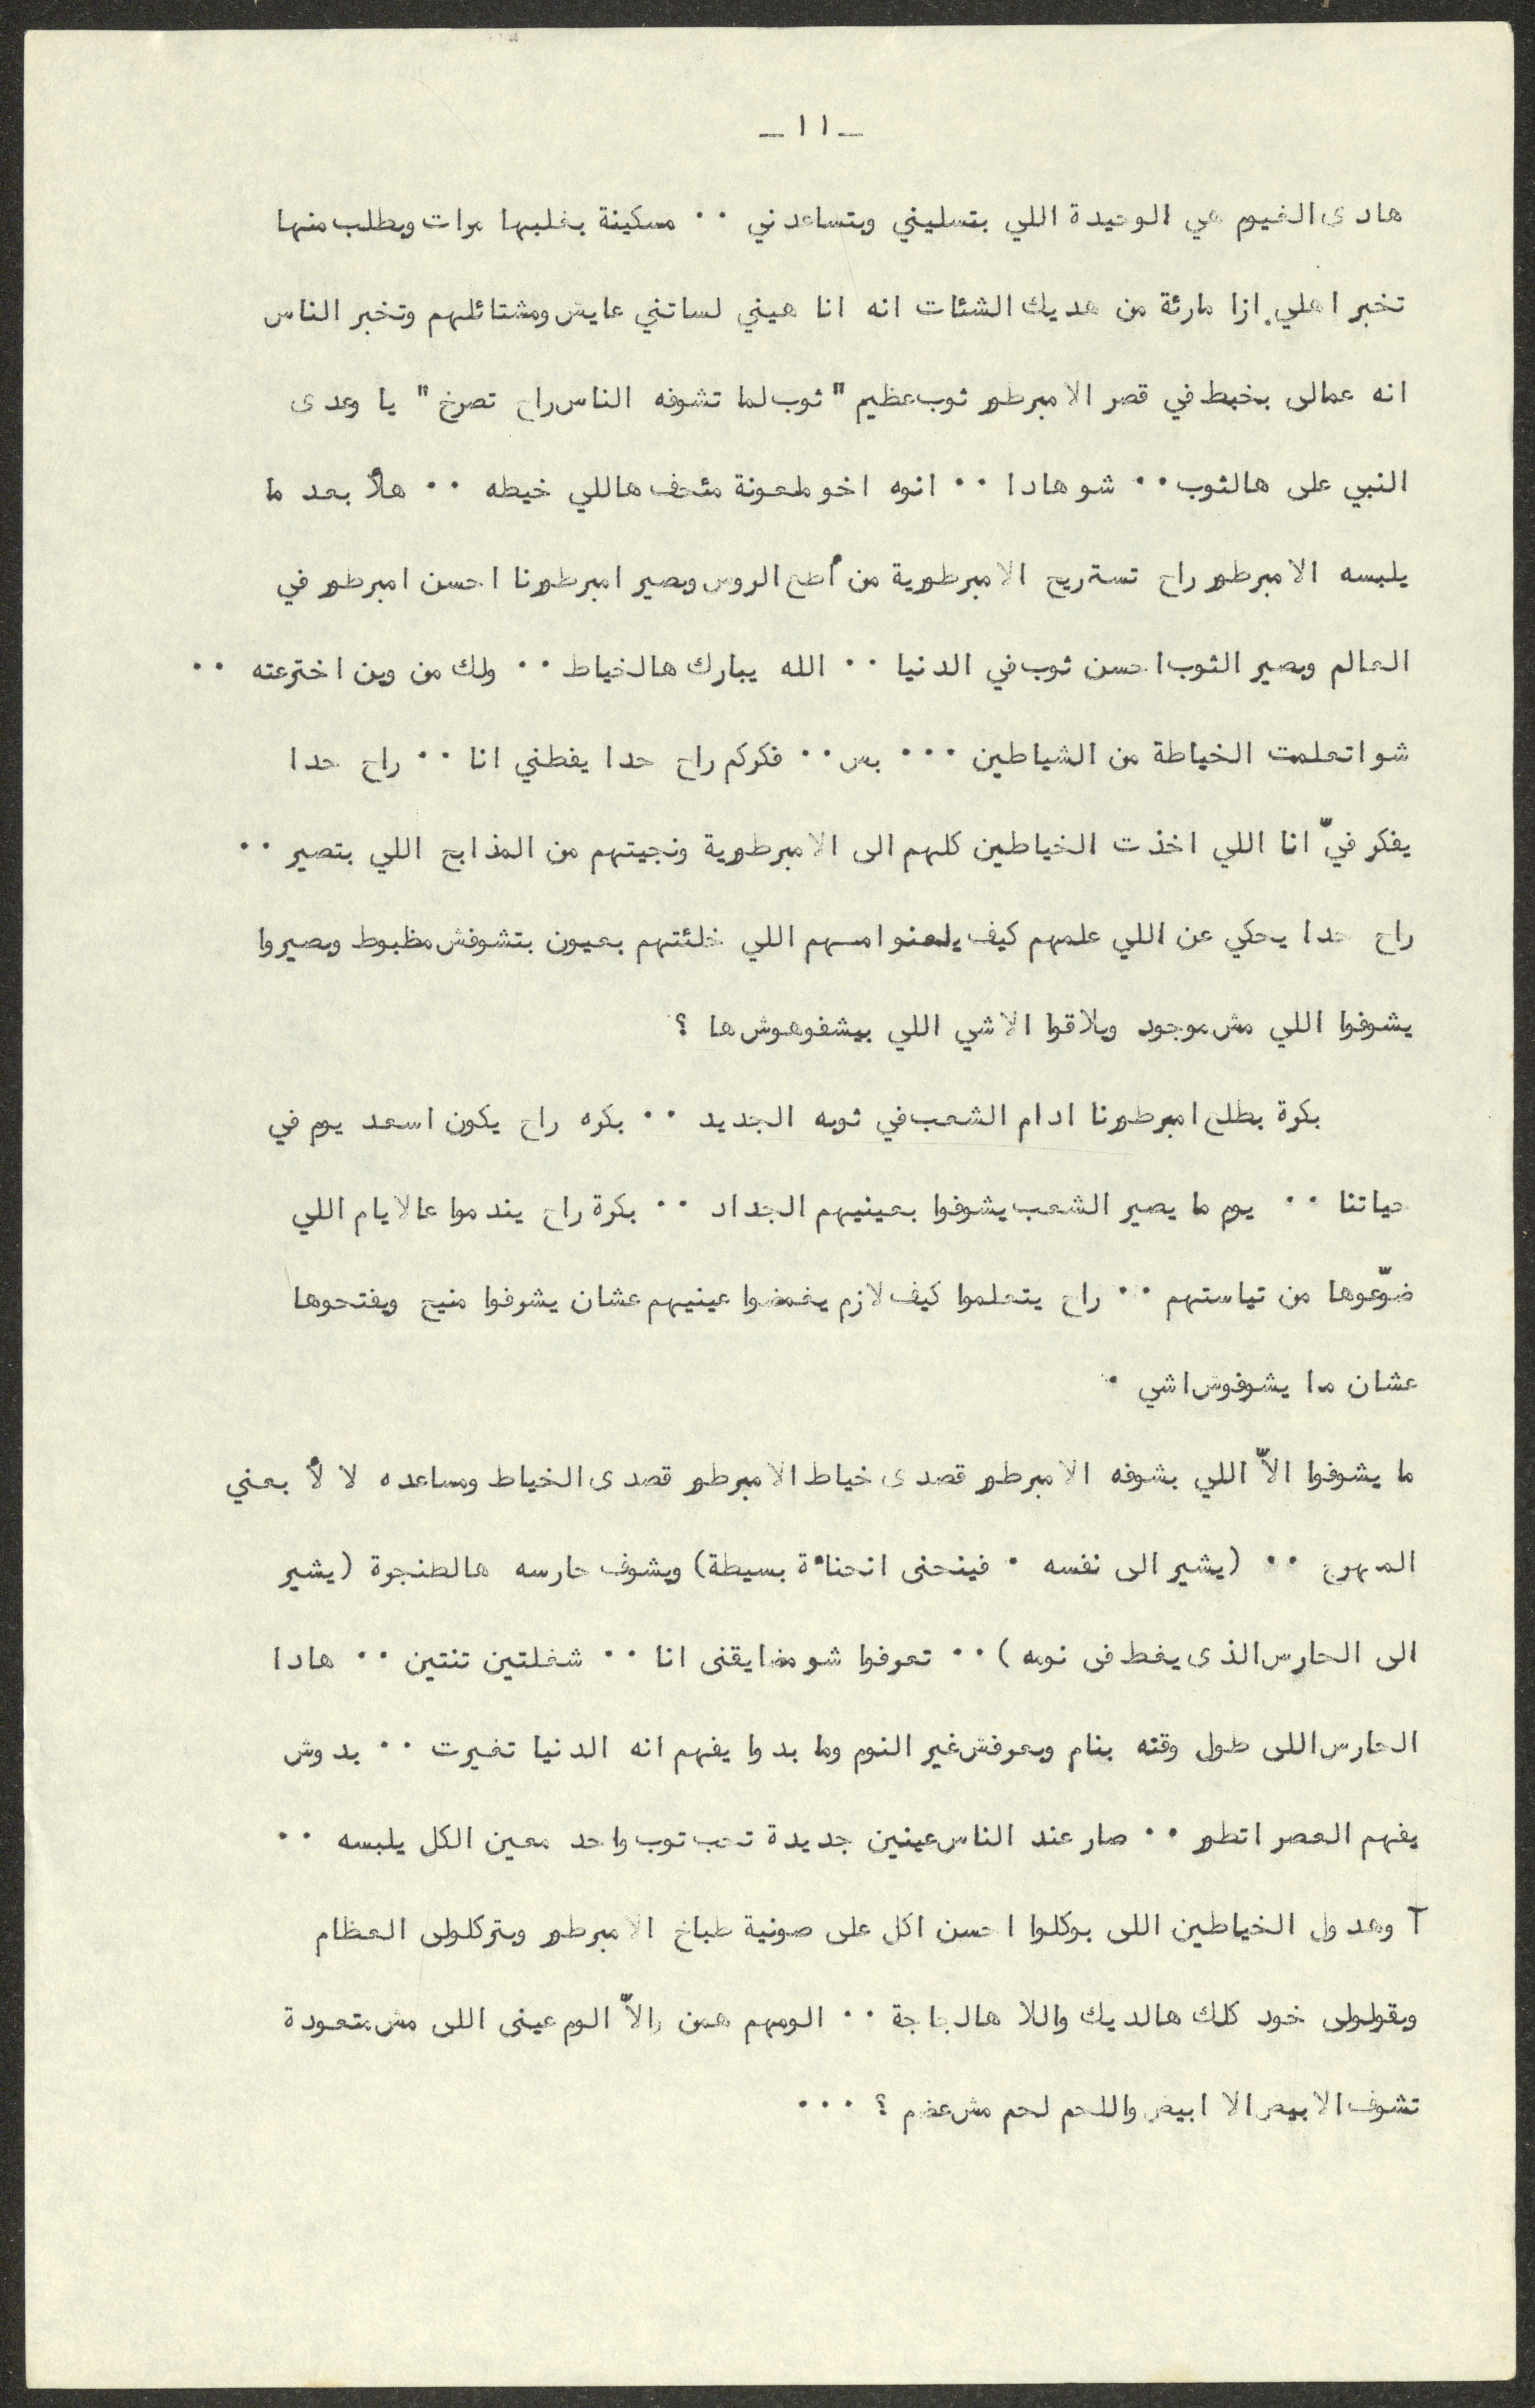 ـ ١١ ـ
هادى الغيوم هي الوحيدة اللي بتسليني وبتساعدني ٠٠ مسكينة بغلبها مرات وبطلب منها
تخبر اهلي ازا مارئة من هديك الشئات انه انا هيني لساتني عايش ومشتائلهم وتخبر الناس
انه عمالى بخيط في قصر الامبرطور ثوب عظيم " ثوب لما تشوفه الناس راح تصرخ " يا وعدى
النبي على هالثوب ٠٠ شو هادا ٠٠ انوه اخو ملعونة مئحف هاللي خيطه ٠٠ هلأ بعد ما
يلبسه الامبرطور راح تستريح الامبرطورية من أطع الروس وبصير امبرطورنا احسن امبرطور في
العالم وبصير الثوب احسن ثوب في الدنيا ٠٠ الله يبارك هالخياط ٠٠ ولك من وين اخترعته ٠٠
شو اتعلمت الخياطة من الشياطين ٠٠٠ بس ٠٠ فكركم راح حدا يفطني انا ٠٠ راح حدا
يفكر فيّ انا اللي اخذت الخياطين كلهم الى الامبرطورية ونجيتهم من المذابح اللي بتصير ٠٠
راح حدا يحكي عن اللي علمهم كيف يلعنوا امسهم اللي خلئتهم بعيون بتشوفش مظبوط وبصيروا
يشوفوا اللي مش موجود ويلاقوا الاشي اللي بيشفوهوش ها ؟
بكرة بطلع امبرطورنا ادام الشعب في ثوبه الجديد ٠٠ بكره راح يكون اسعد يوم في
حياتنا ٠٠ يوم ما يصير الشعب يشوفوا بعينيهم الجداد ٠٠ بكرة راح يندموا عالايام اللي
ضوّعوها من تياستهم ٠٠ راح يتعلموا كيف لازم يغمضوا عينيهم عشان يشوفوا منيح ويفتحوها
عشان ما يشوفوش اشي ٠
ما يشوفوا الاّ اللي بشوفه الامبرطور قصدى خياط الامبرطور قصدى الخياط ومساعده لا لأ بعني
المهرج ٠٠ (يشير الى نفسه ٠ فينحنى انحناءة بسيطة) وبشوف حارسه هالطنجرة (يشير
الى الحارس الذى يغط فى نومه ) ٠٠ تعرفوا شو مضايقنى انا ٠٠ شغلتين تنتين ٠٠ هادا
الحارس اللى طول وقته بنام وبعرفش غير النوم وما بدوا يفهم انه الدنيا تغيرت ٠٠ بدوش
يفهم العصر اتطور ٠٠ صار عند الناس عينين جديدة تحب توب واحد معين الكل يلبسه ٠٠
T وهدول الخياطين اللى بوكلوا احسن اكل على صونية طباخ الامبرطور وبتركلولى العظام
وبقولولى خود كلك هالديك واللا هالجاجة ٠٠ الومهم همن والاّ الوم عينى اللى مش متعودة
تشوف الابيض الا ابيض واللحم لحم مش عضم ؟ ٠٠٠